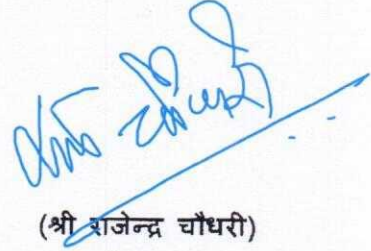 (श्री राजेन्द्र चौधरी)